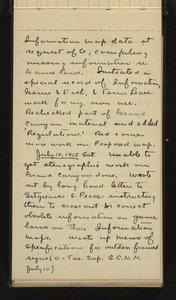 Information map data at
request of Co, compiling
missing information re
Game laws. Initiated a
special record of Information,
Game & Fish, & Term Lease
work for my own use.
Rechecked part of Grand
Canyon natural and added
Regulations. Did some
more work on Proposed map.
July 10, 1915 Sat. Unable to
get stenographic work on
Grand Canyon done. Wrote
out by long hand letters to
Sitgreaves & Pecos instructing
them to cross out & correct
obsolete information on game
laws on their Information
maps. Wrote up memo of
Specifications for outdoor framed
signs (D - Tus. Sup. G.C.N.M.
July 10)